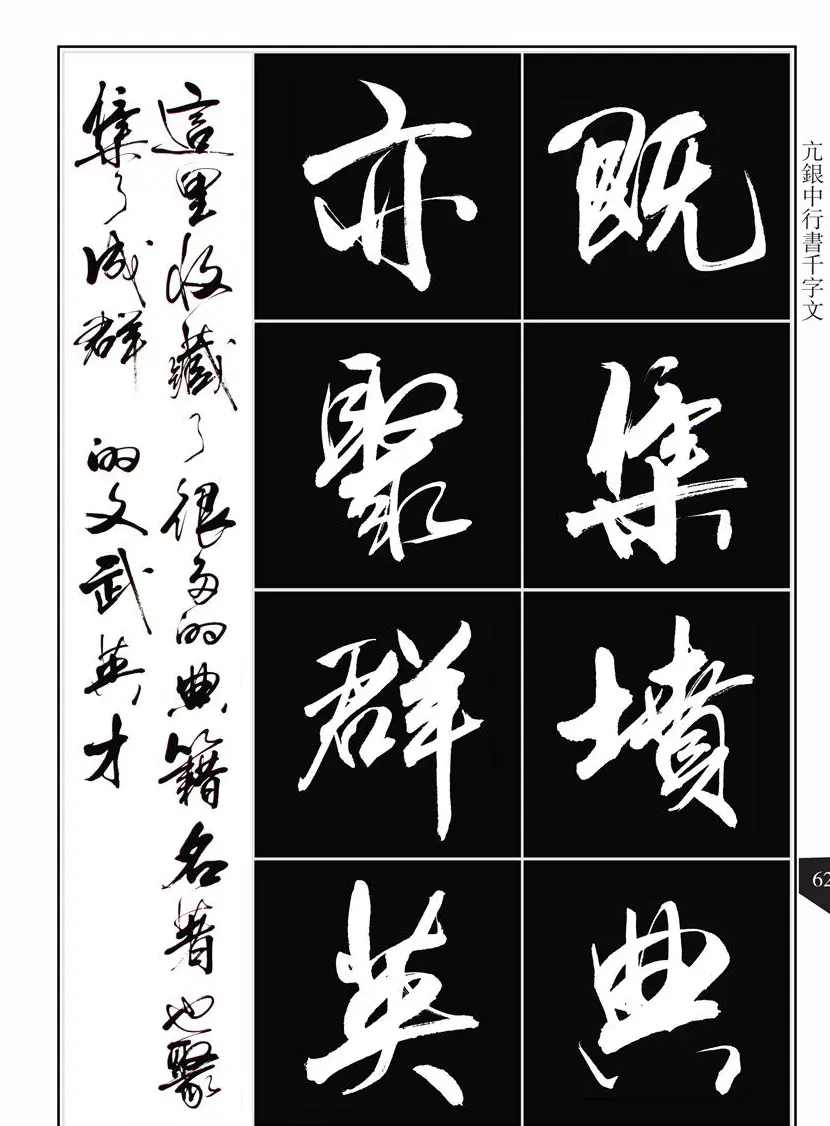 亢銀中行書千字文
既集墳典
亦聚群英
這里收藏了很多的典籍名著也聚
集了成群的文武英才
62